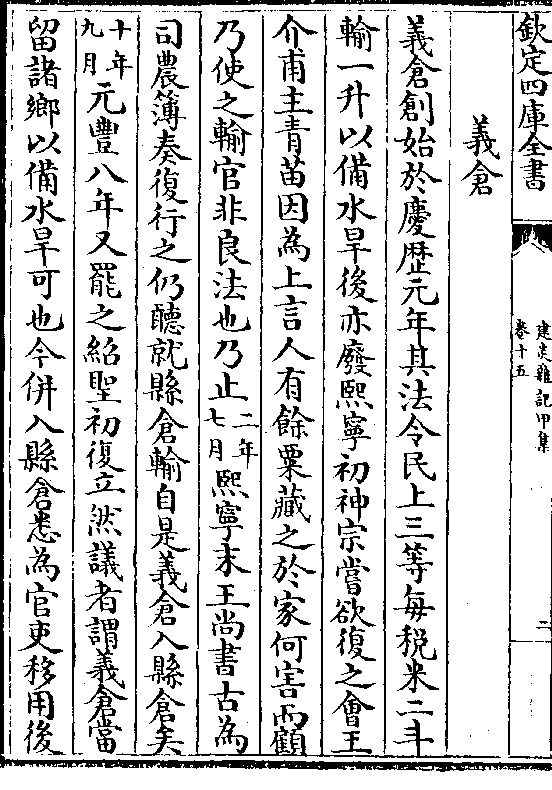 欽定四庫全書
建炎雜記甲集
卷十五
二
義倉
義倉創始於慶歴元年其法令民上三等每税米二斗
輸一升以備水旱後亦廢熙寧初神宗嘗欲復之會王
介甫主青苗因為上言人有餘粟藏之於家何害而顧
乃使之輸官非良法也乃止二年七月熙寧末王尚書古為
司農簿奏復行之仍聽就縣倉輸自是義倉入縣倉矣
十年九月元豐八年又罷之紹聖初復立然議者謂義倉當
留諸鄉以備水旱可也今併入縣倉悉為官吏移用後